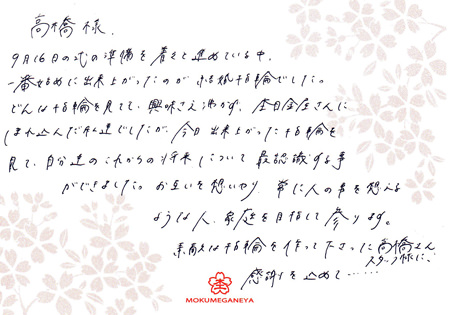 高橋様.
9月16日の式の準備を着々と進めている中、
一番始めに出来上がったのが結婚指輪でした。
どんな指輪を見ても、興味さえ沸かず、杢目金屋さんに
ほれ込んだ私達でしたが、今日出来上がった指輪を
見て、自分達のこれからの将来について最認識する事
ができました。お互いを想いやり常に人の事を想える
ような人、家庭を目指して参ります。
素敵な指輪を作って下さった高橋さん
スタッフ様に、
感謝を込めて……
MOKUMEGANEYA